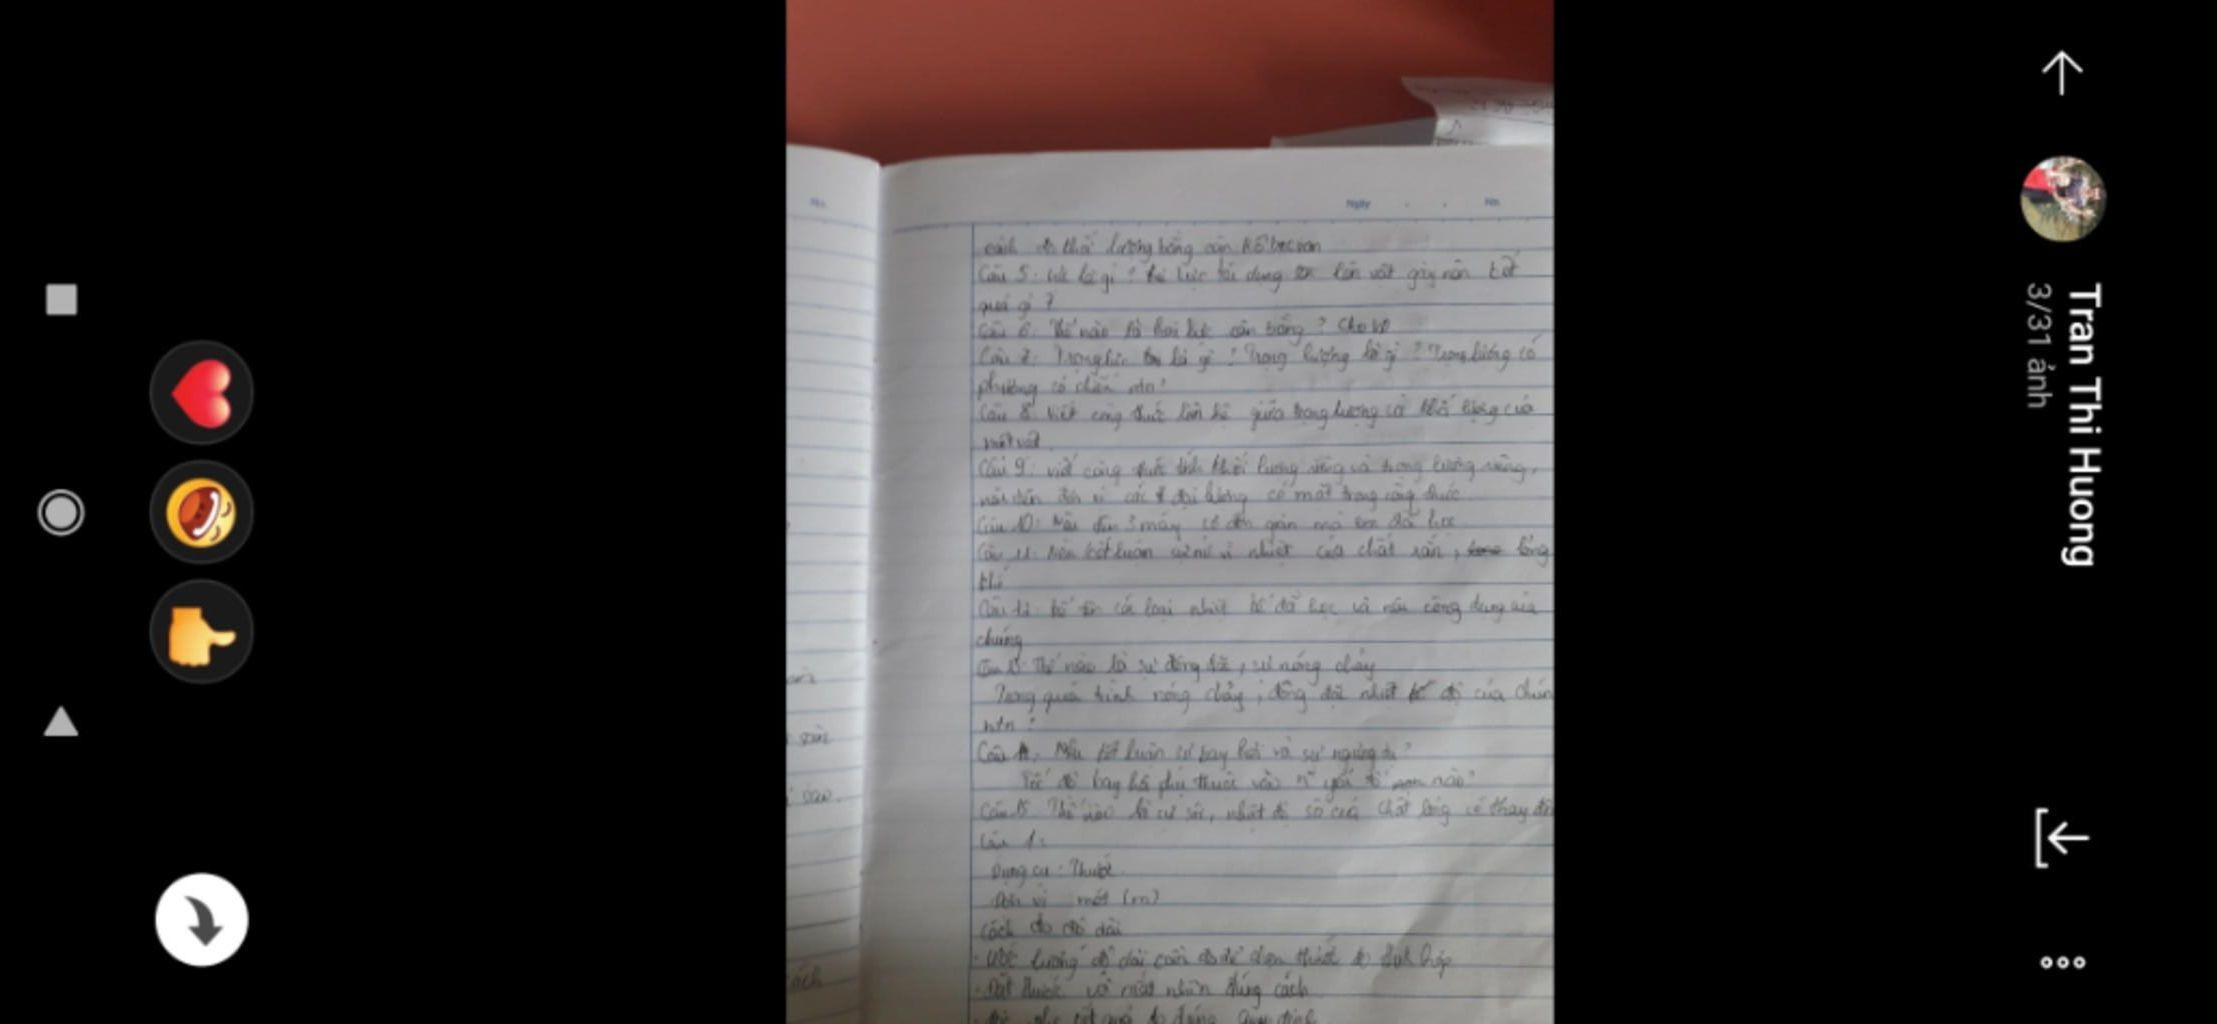 Ngày
No.
cách đo khối lượng bằng cân Rôbecvan
Câu 5: Lực là gì? Khi lực tác dụng lên vật gây nên kết
quả gì?
Câu 6: Thế nào là hai lực cân bằng? Cho VD
Câu 7: Trọng lực là gì? Trọng lượng là gì? Trọng lượng có
phương có chiều ntn?
Câu 8: Viết công thức liên hệ giữa trọng lượng và khối lượng của
một vật
Câu 9: viết công thức tính khối lượng riêng và trọng lượng riêng,
đơn vị các đại lượng có mặt trong công thức
Câu 10: Nêu tên 3 máy cơ đơn giản mà em đã học
Câu 11: Nêu kết luận sự nở vì nhiệt của chất rắn, lỏng
khí
Câu 12: kể tên các loại nhiệt kế đã học và nêu công dụng của
chúng
Câu 13: Thế nào là sự đông đặc, sự nóng chảy
Trong quá trình nóng chảy, đông đặc nhiệt độ của
ntn?
Câu 14: Nêu kết luận sự bay hơi và sự ngưng tụ?
Tốc độ bay hơi phụ thuộc vào yếu tố nào?
Câu 15: Thế nào là sự sôi, nhiệt độ sôi của chất lỏng có thay đổi
Câu 1:
Dụng cụ: Thước
Đơn vị mét (m)
Cách đo độ dài
- Ước lượng độ dài cần đo để chọn thước đo thích hợp
- Đặt thước và mắt nhìn đúng cách
kết quả đo đúng quy định
cách
Tran Thi Huong
3/31 ảnh